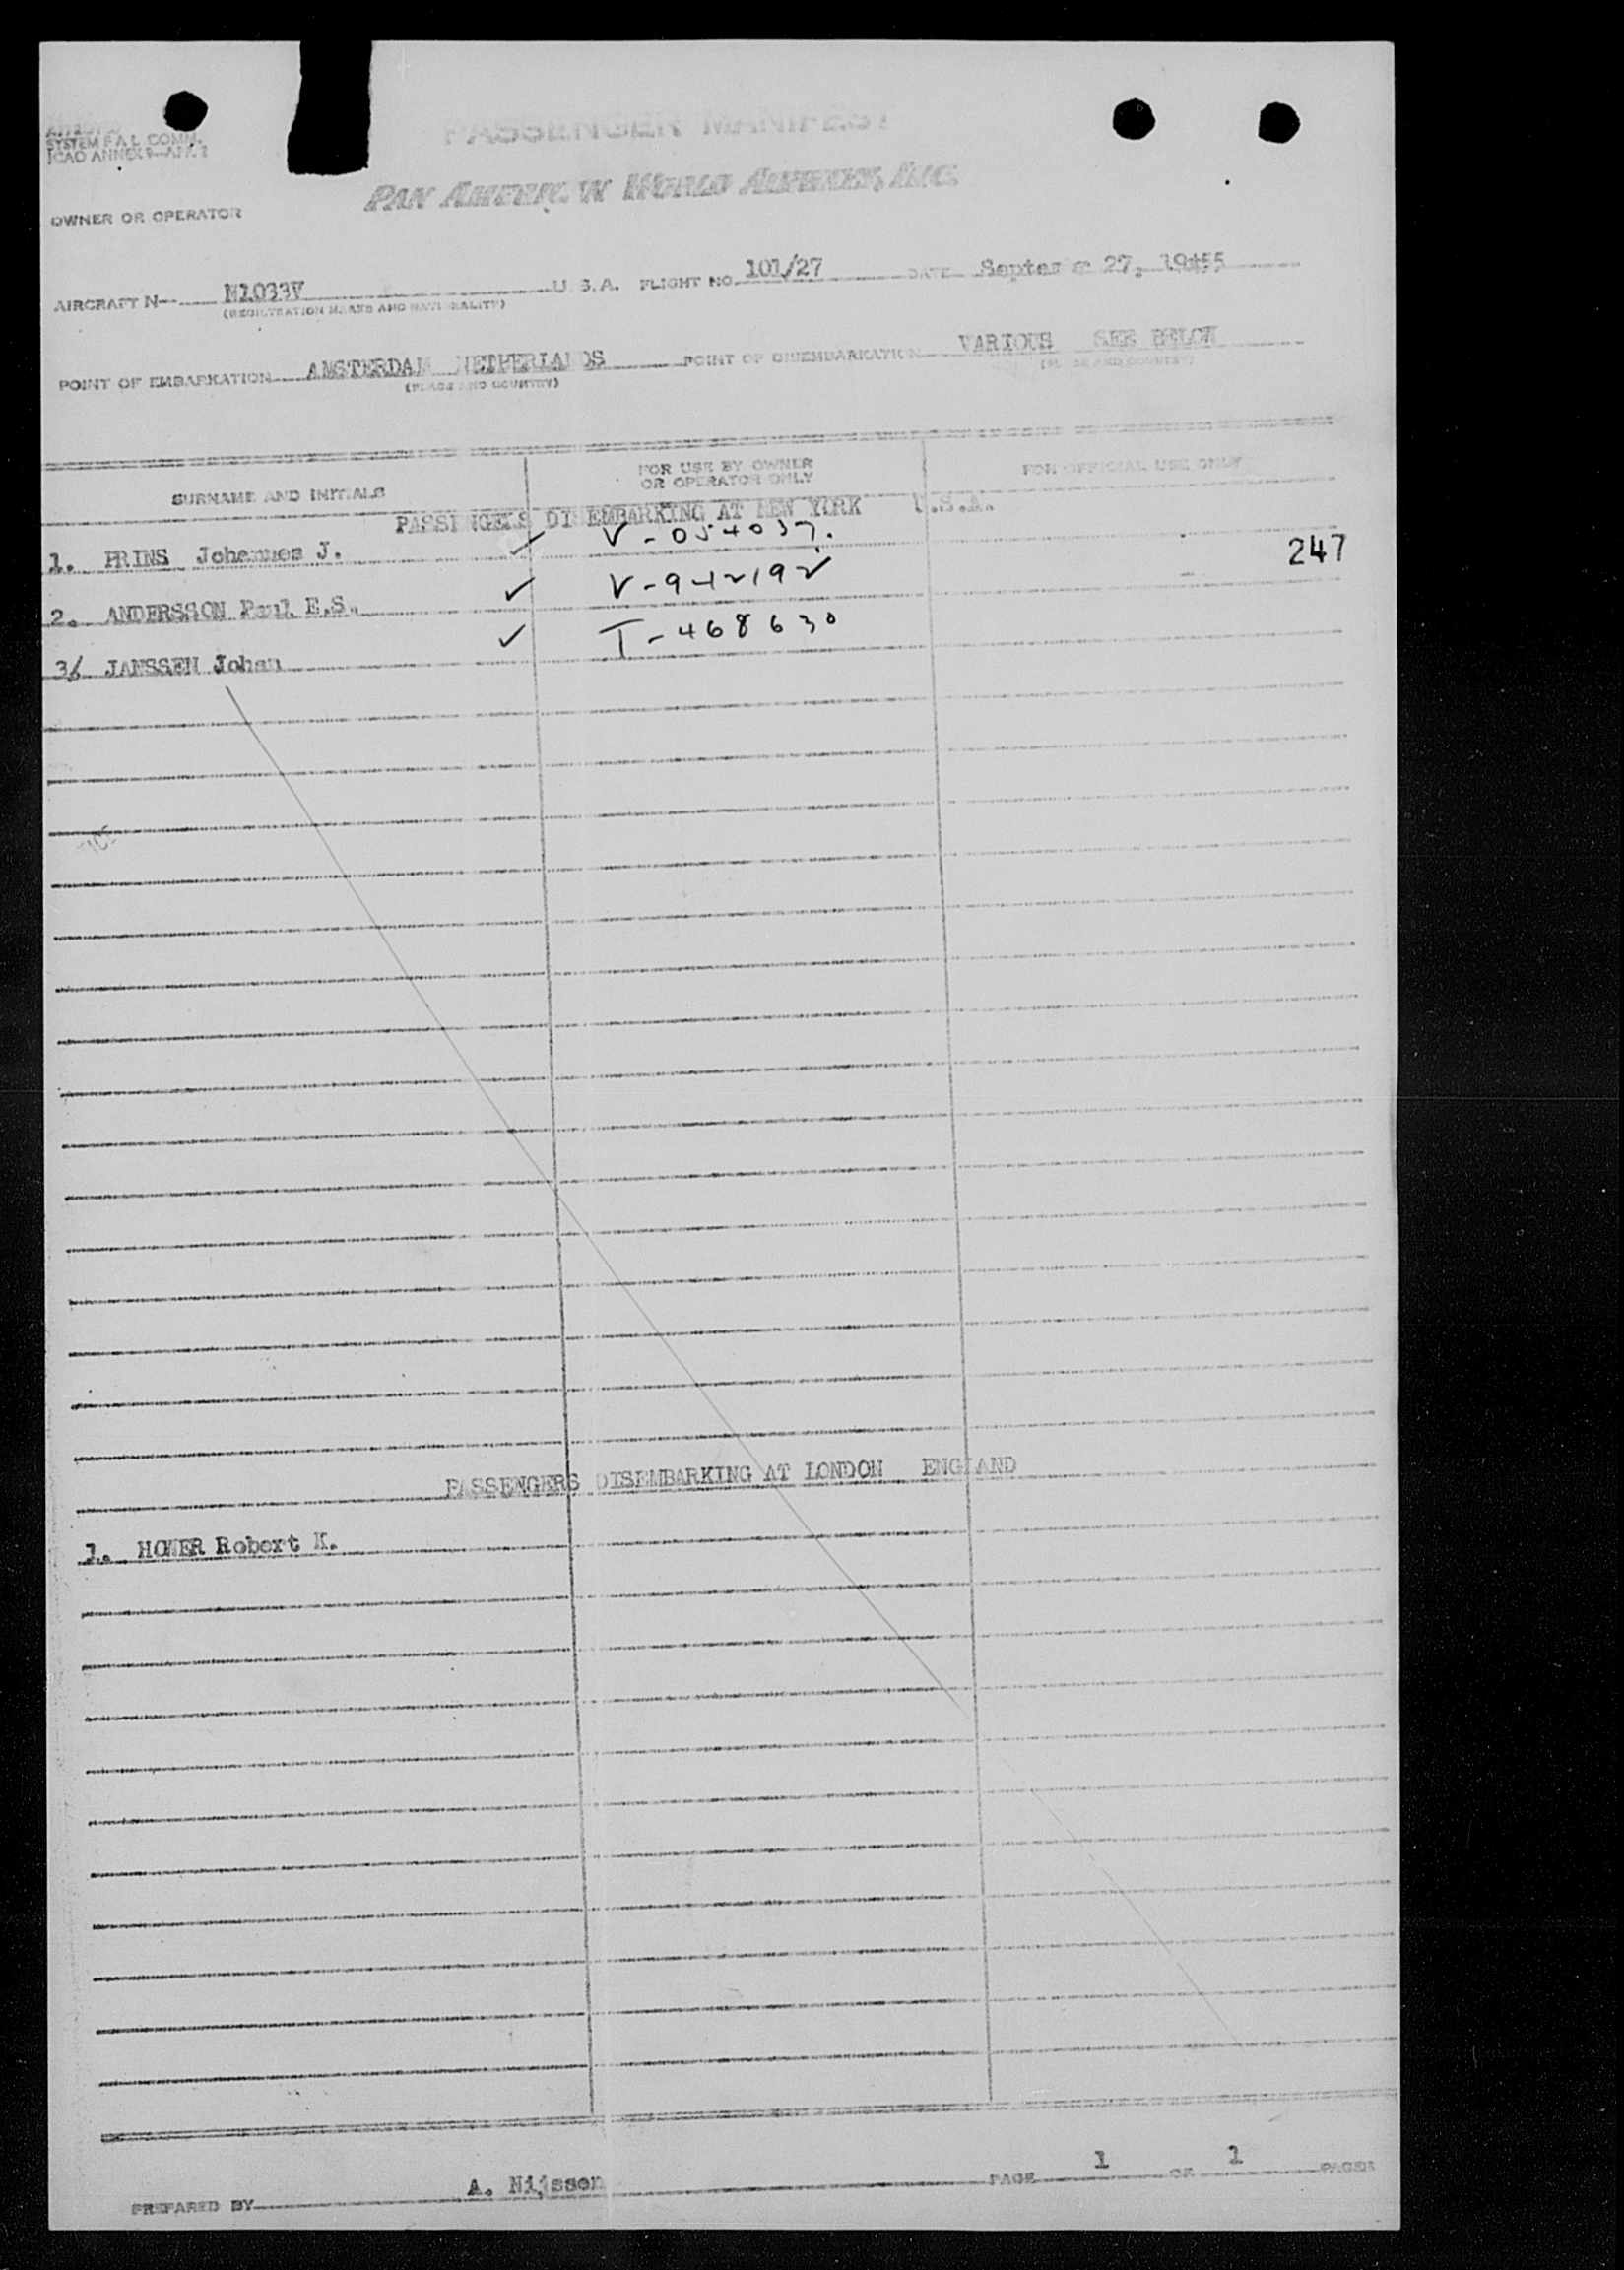 SYSTEM F.A.L. COMM.
ICAO ANNEX 9-
PASSENGER MANIFEST
OWNER OR OPERATOR PAN AMERICAN WORLD AIRWAYS, INC.
AIRCRAFT N— N1033V U.S.A. FLIGHT NO. 101/27 DATE 27, 1955
(REGISTRATION MARKS AND NATIONALITY)
POINT OF EMBARKATION AMSTERDAM NETHERLANDS POINT OF DISEMBARKATION VARIOUS SEE BELOW
(PLACE AND COUNTRY) (PLACE AND COUNTRY)
SURNAME AND INITIALS FOR USE BY OWNER OR OPERATOR ONLY FOR OFFICIAL USE ONLY
PASSENGERS DISEMBARKING AT NEW YORK U.S.A.
1. PRINS Johannes J. ✓ V-054037.
247
2. ANDERSSON Paul E.S. ✓ V-942192
3/ JANSSEN Johan ✓ T-468630
PASSENGERS DISEMBARKING AT LONDON ENGLAND
1. Robert
PREPARED BY A. Nijssen PAGE 1 OF 1 PAGES